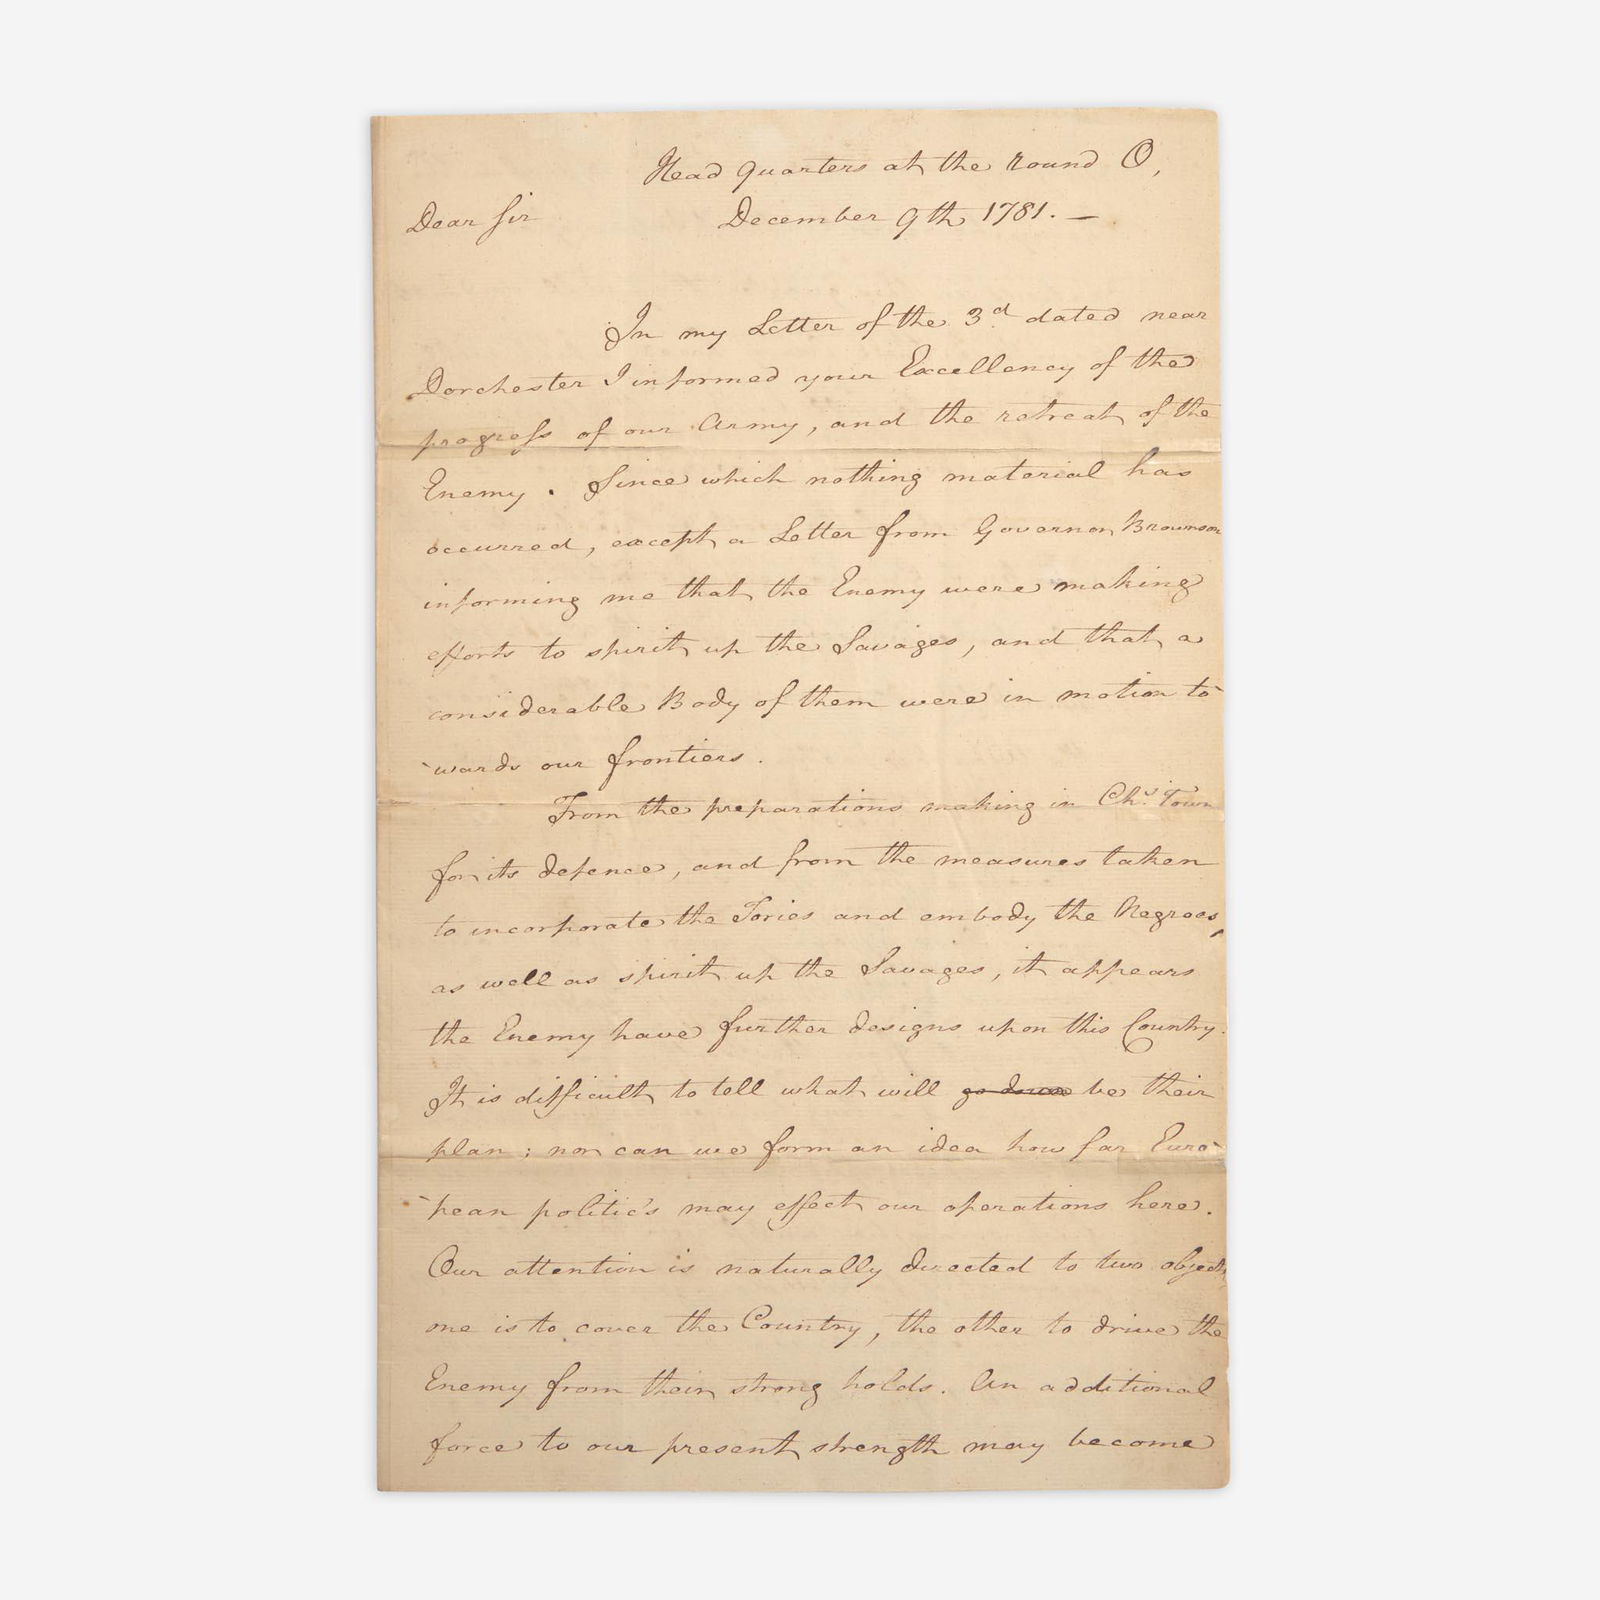 Head quarters at the round O,
Dear Sir December 9th 1781. —
In my Letter of the 3d dated near
Dorchester I informed your Excellency of the
progress of our Army, and the retreat of the
Enemy. Since which nothing material has
occurred, except a Letter from Governor Brownson
informing me that the Enemy were making
efforts to spirit up the Savages, and that a
considerable Body of them were in motion to-
-wards our frontiers.
From the preparations making in Chs. Town
for its defence, and from the measures taken
to incorporate the Tories and embody the Negroes,
as well as spirit up the Savages, it appears
the Enemy have further designs upon this Country.
It is difficult to tell what will go down be their
plan; nor can we form an idea how far Euro-
-pean politics may effect our operations here.
Our attention is naturally directed to two objects,
one is to cover the Country, the other to drive the
Enemy from their strong holds. An additional
force to our present strength may become